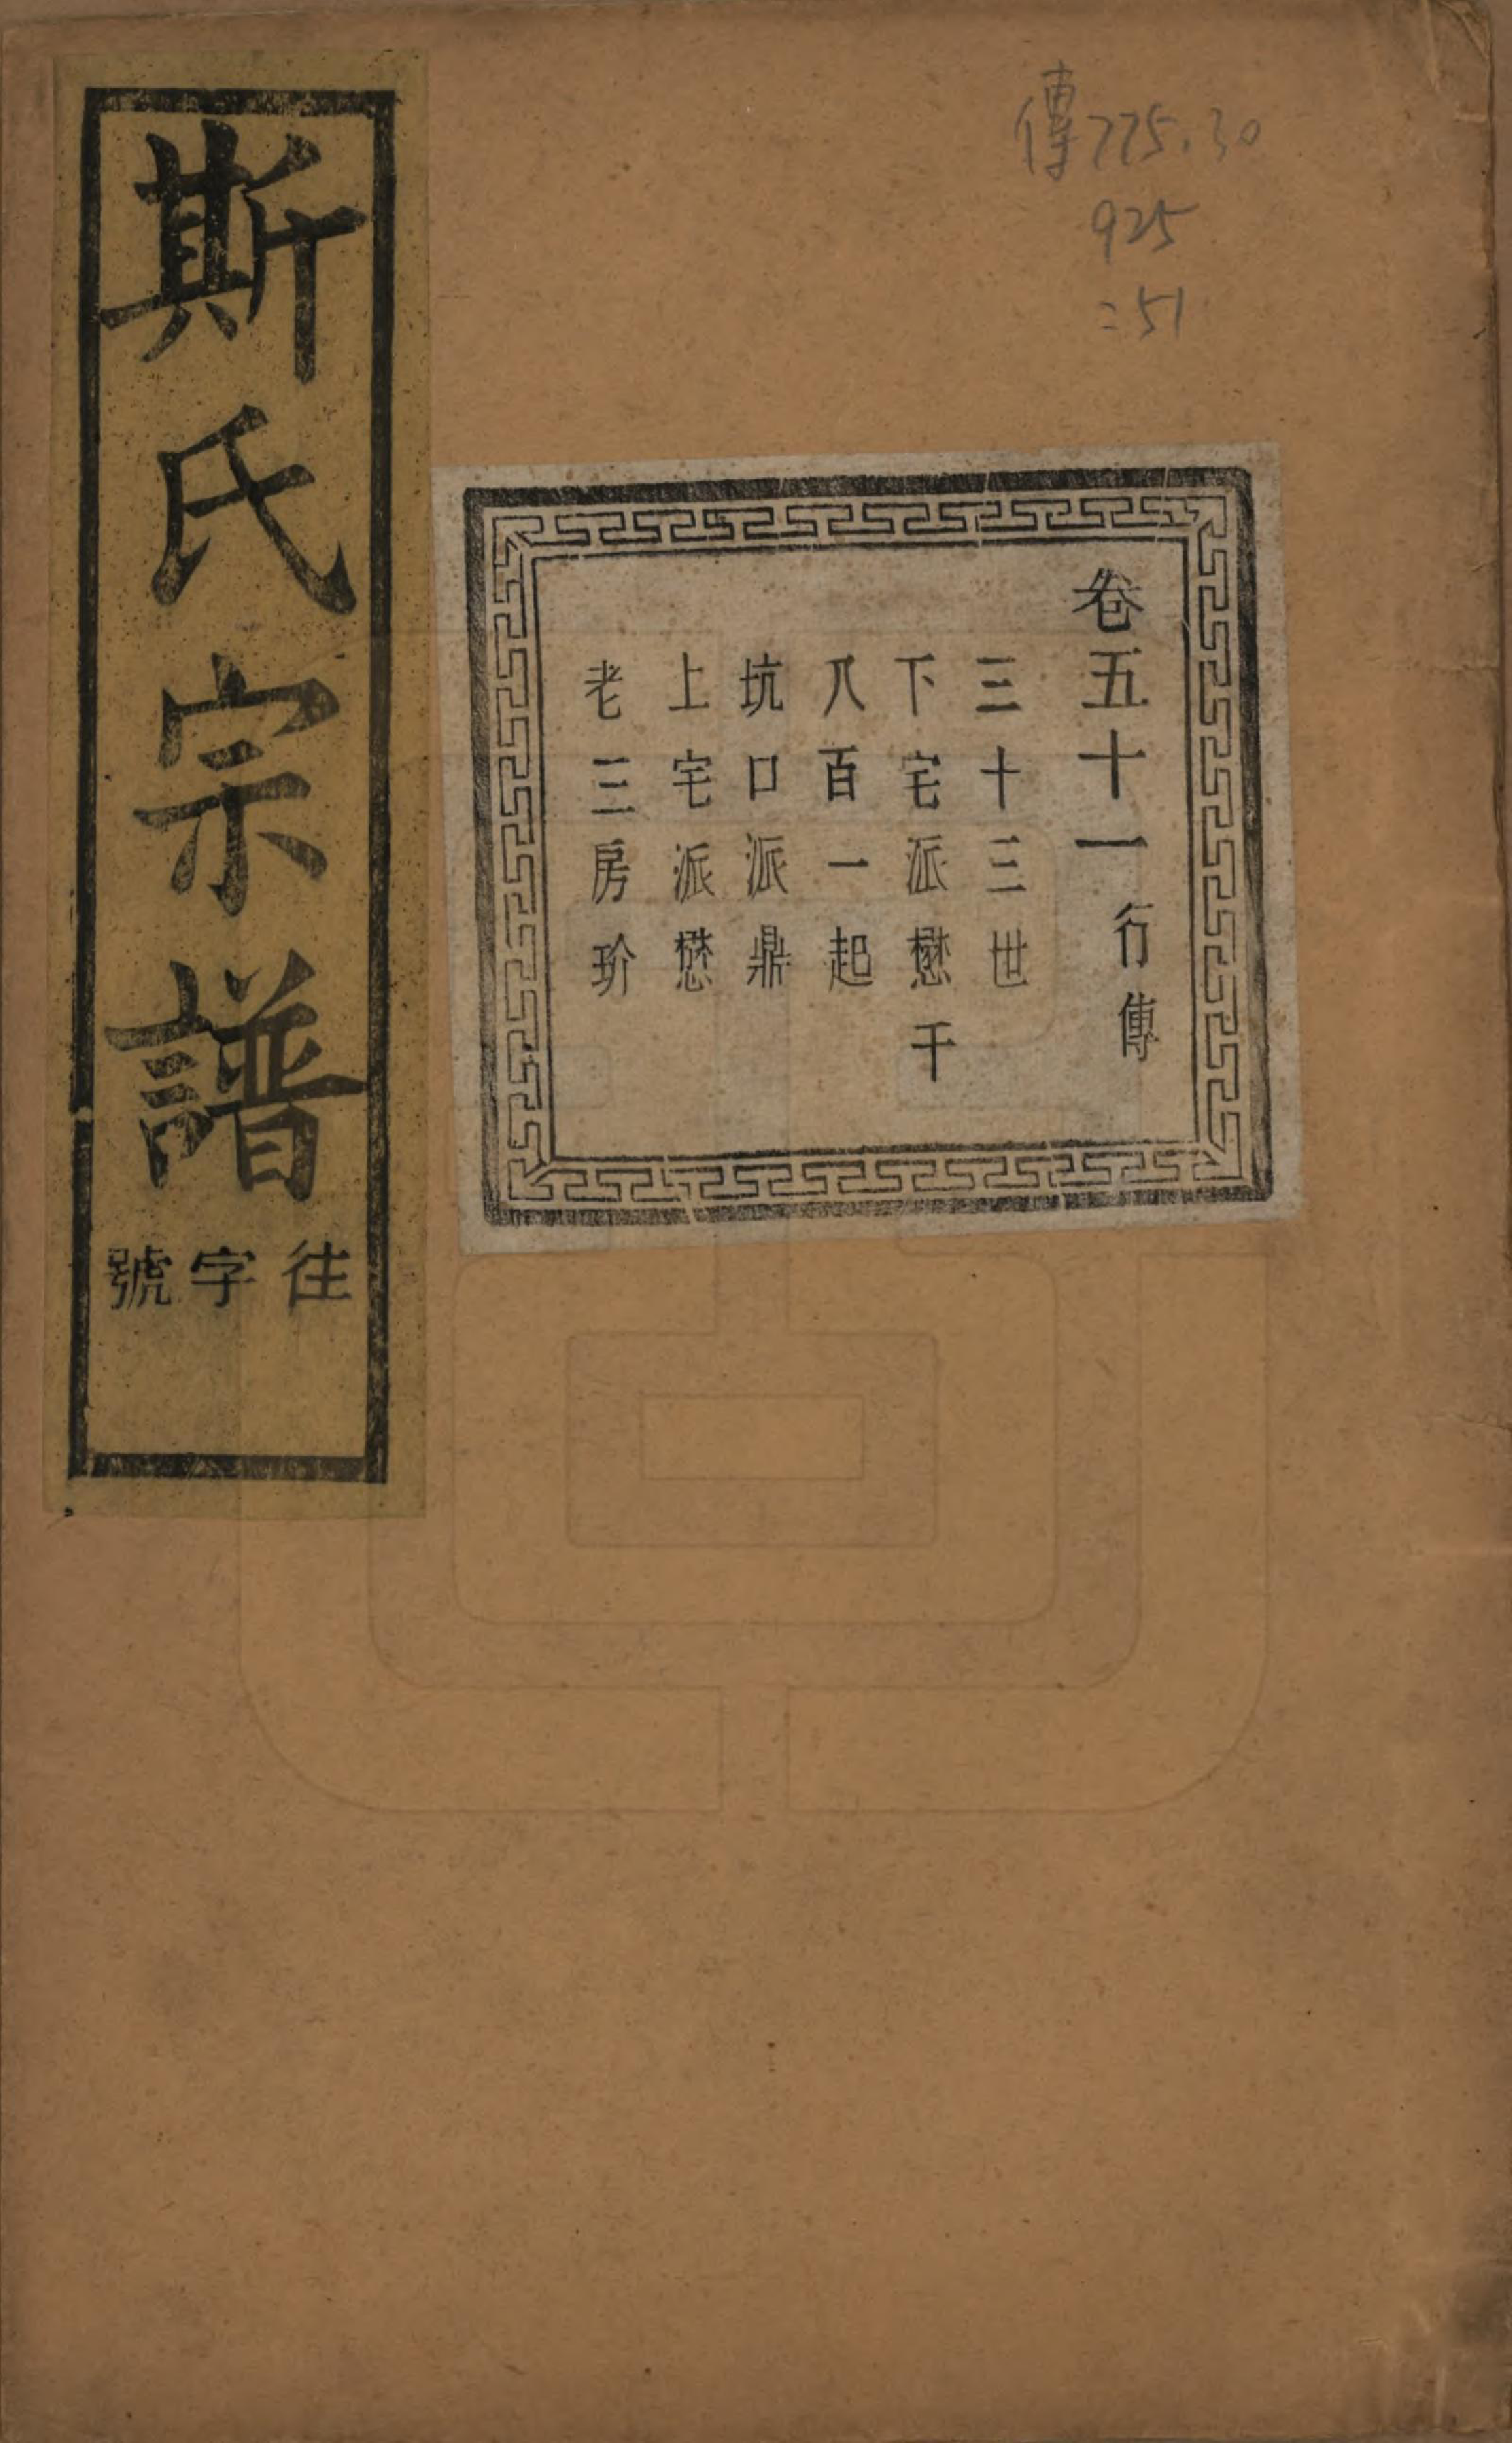 傳775.30
925
=51
卷五十一行傳
三十三世
下宅派懋千
八百一起
坑口派鼎
上宅派懋
老三房玠
斯氏宗譜
往字號